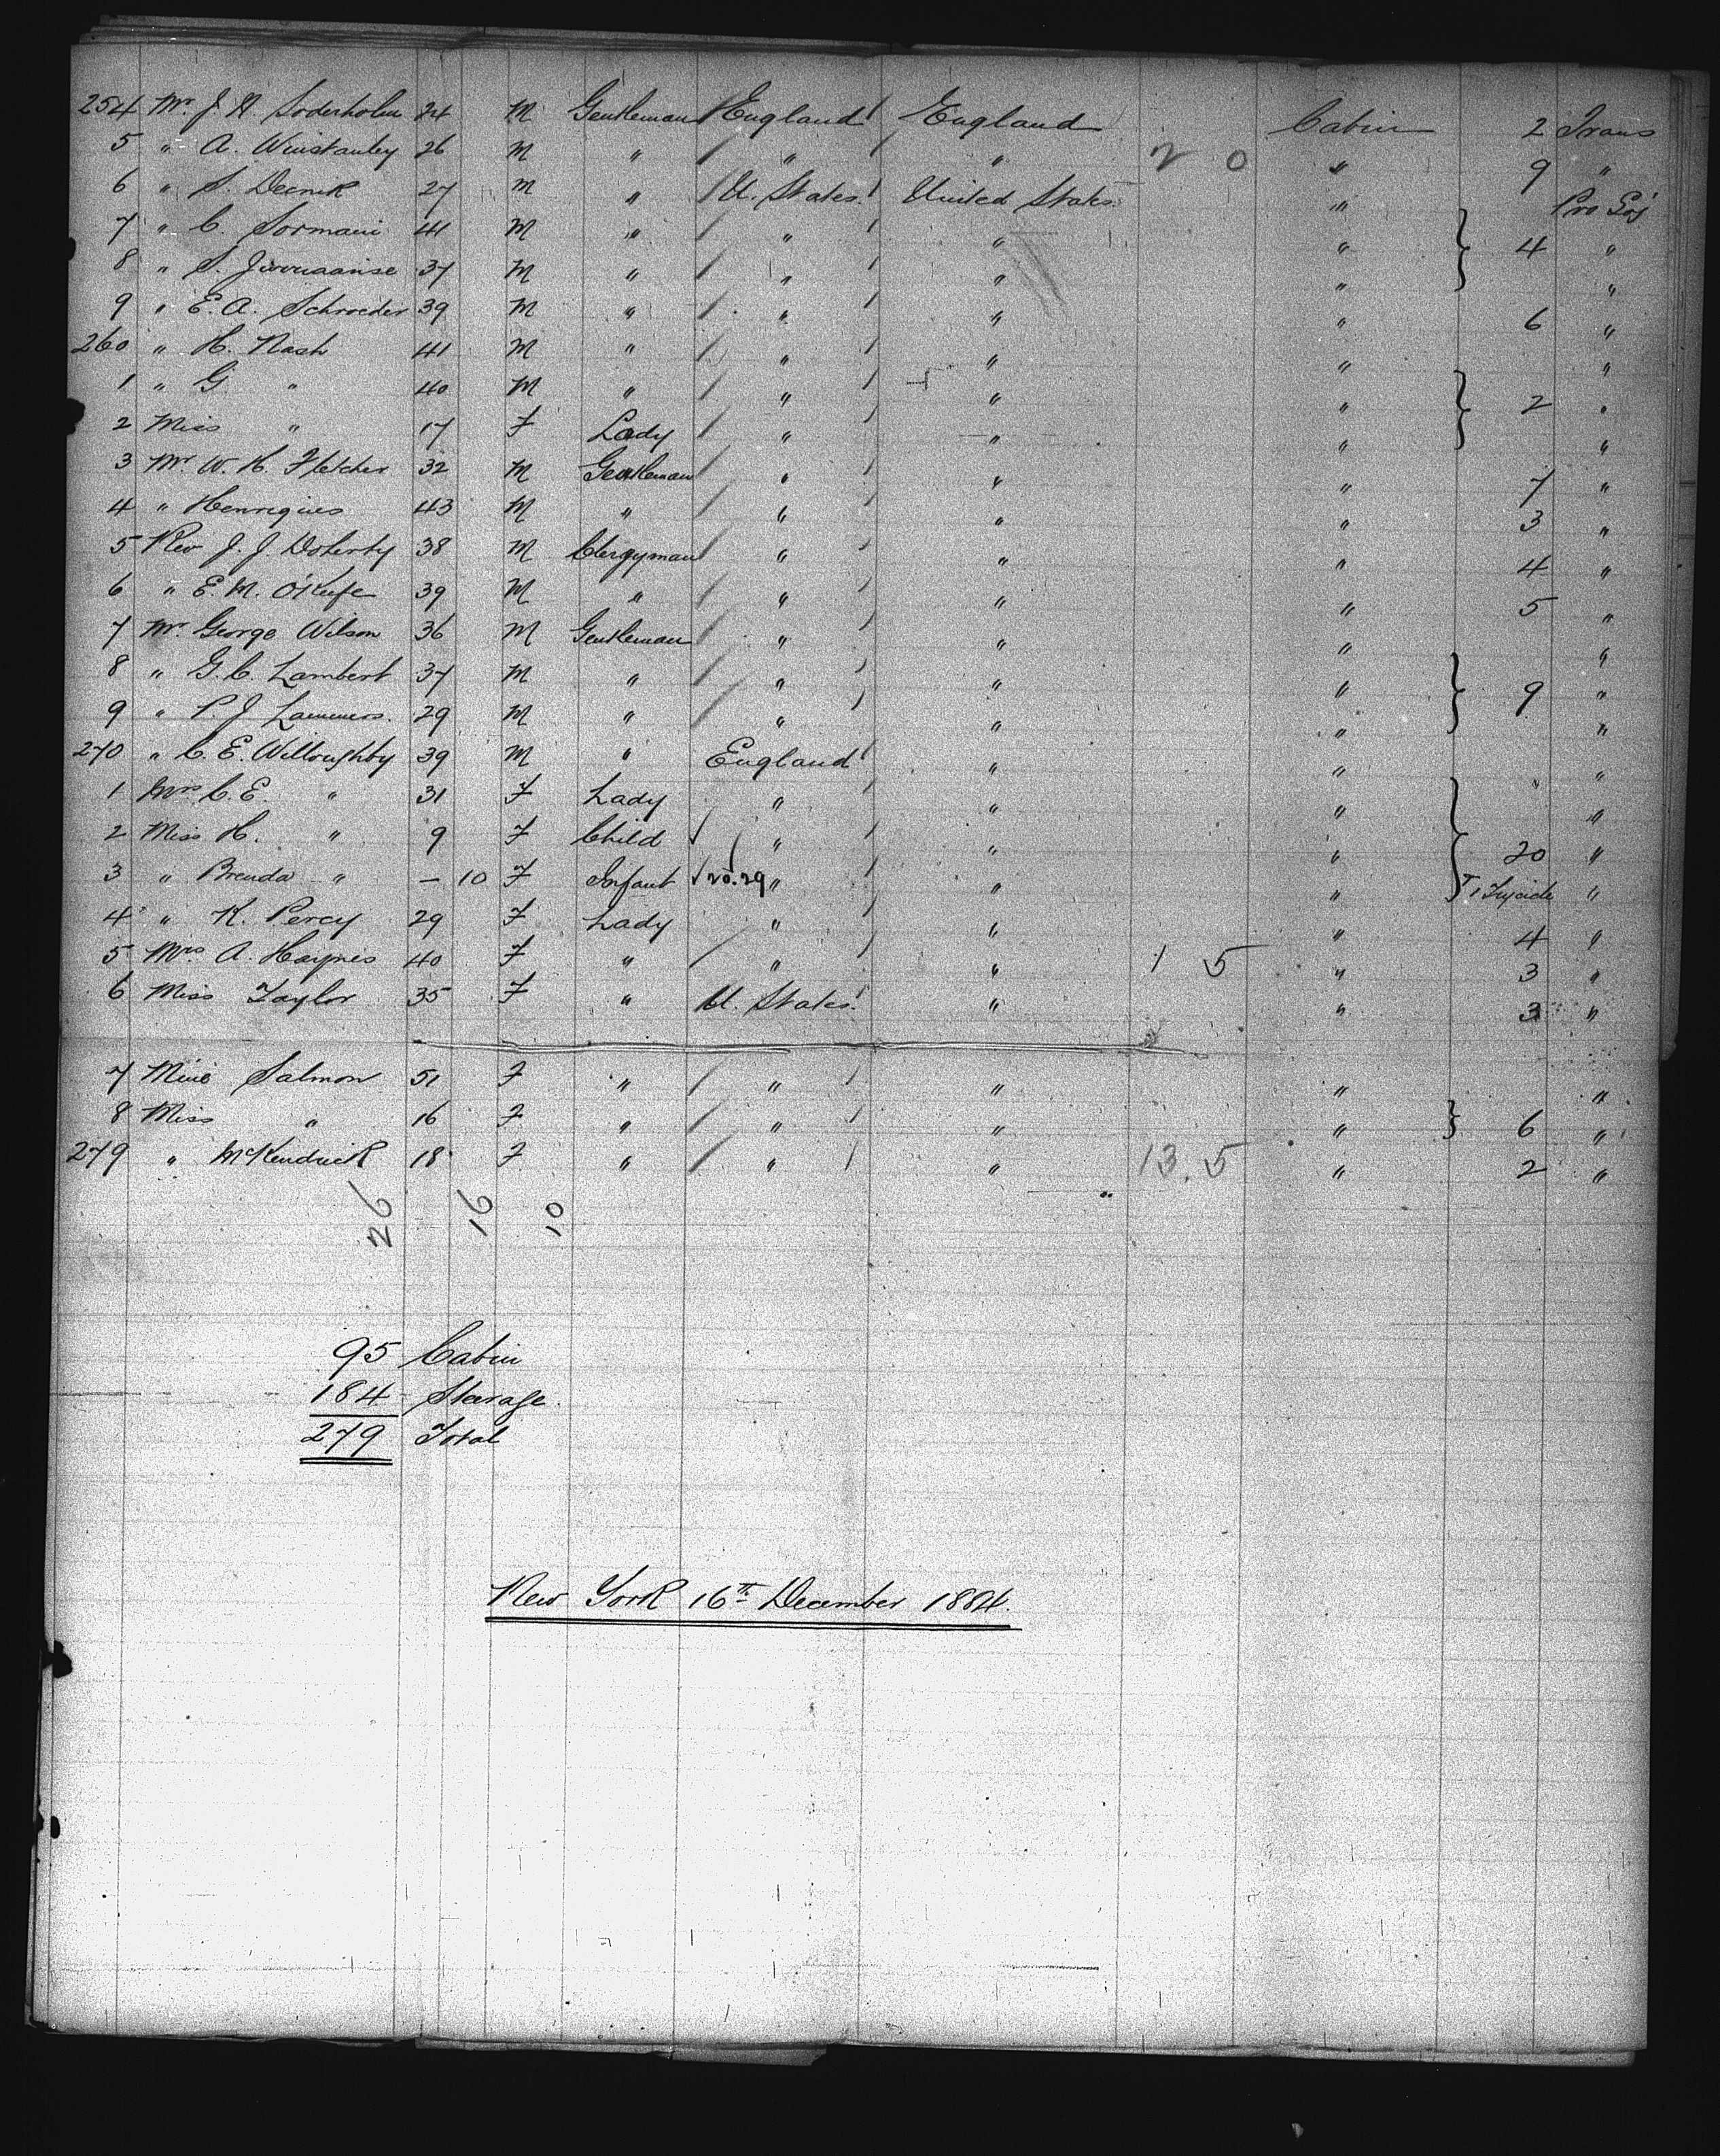 254 Mr. J. A. Soderholm 24 M Gentleman England England Cabin 2 Trans
5 " A. Winstanley 26 M " " " 2 0 " 9 "
6 " S. Deenik 27 M " U. States United States "
7 " C. Sormani 41 M " " " " 4 "
8 " S. 37 M " " " " "
9 " E. A. Schroeder 39 M " " " " 6 "
260 " H. Nash 41 M " " " " "
1 " G " 40 M " " " " 2 "
2 Miss " 17 F Lady " " " "
3 Mr W. H. Fletcher 32 M Gentleman " " " 7 "
4 " Henriques 43 M " " " " 3 "
5 Rev J. J. Doherty 38 M Clergyman " " " 4 "
6 " E. M. O'Keefe 39 M " " " " 5 "
7 Mr. George Wilson 36 M Gentleman " " " "
8 " G. C. Lambert 37 M " " " " 9 "
9 " P. J. Lammers. 29 M " " " " "
270 " C. E. Willoughby 39 M " England " " "
1 Mrs C. E. " 31 F Lady " " " "
2 Miss H. " 9 F Child " " " 20 "
3 " Brenda " — 10 F Infant 20.29 " " " "
4 " K. Percy 29 F Lady " " " 4 "
5 Mrs A. Haynes 40 F " " " 1 5 " 3 "
6 Miss Taylor 35 F " U. States " " 3 "
7 Salmon 51 F " " " " "
8 Miss " 16 F " " " " 6 "
279 " McKendrick 18 F " " " 13.5 " 2 "
26 16 10
95 Cabin
184 Steerage
279 Total
New York 16th December 1884.